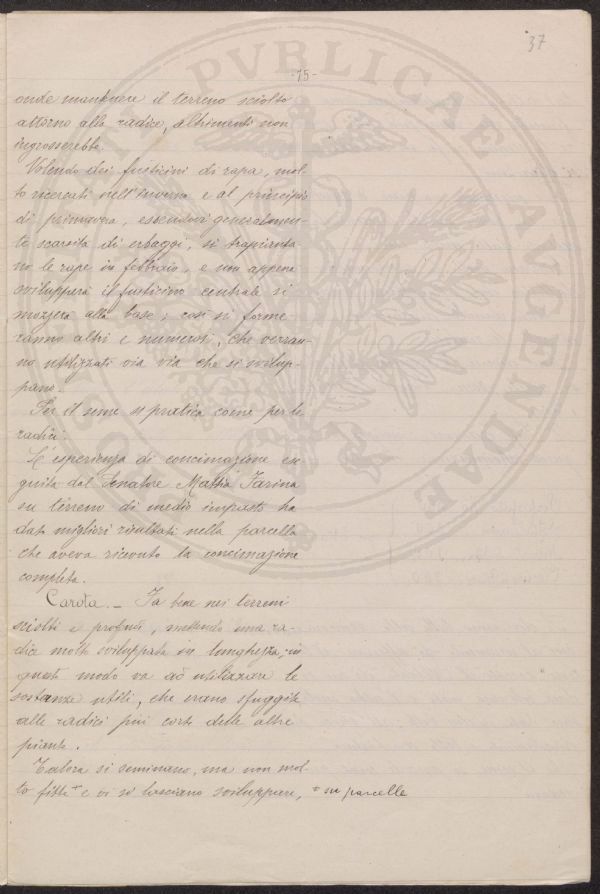 37
-75-
onde mantenere il terreno sciolto
attorno alla radice, altrimenti non
ingrosserebbe.
Volendo dei fusticini di rapa, mol-
to ricercati nell'inverno e al principio
di primavera, essendovi generalmen-
te scarsità di erbaggi, si trapianta-
no le rape in febbraio, e non appena
svilupperà il fusticino centrale si
mozzerà alla base; così si forme
ranno altri e numerosi, che verran-
no utilizzati via via che si svilup-
pano.
Per il seme si pratica come per le
radici.
L'esperienza di concimazione ese-
guita dal Senatore Mattia Farina
su terreno di medio impasto ha
dato migliori risultati nella parcella
che aveva ricevuto la concimazione
completa.
Carota. - Fa bene nei terreni
sciolti e profondi, mettendo una ra-
dice molto sviluppata in lunghezza; in
questo modo va ad utilizzare le
sostanze utili, che erano sfuggite
alle radici più corte delle altre
piante.
Talora si seminano, ma non mol-
to fitte + e vi si lasciano sviluppare, + su parcelle
PVBLICAE AVGENDAE